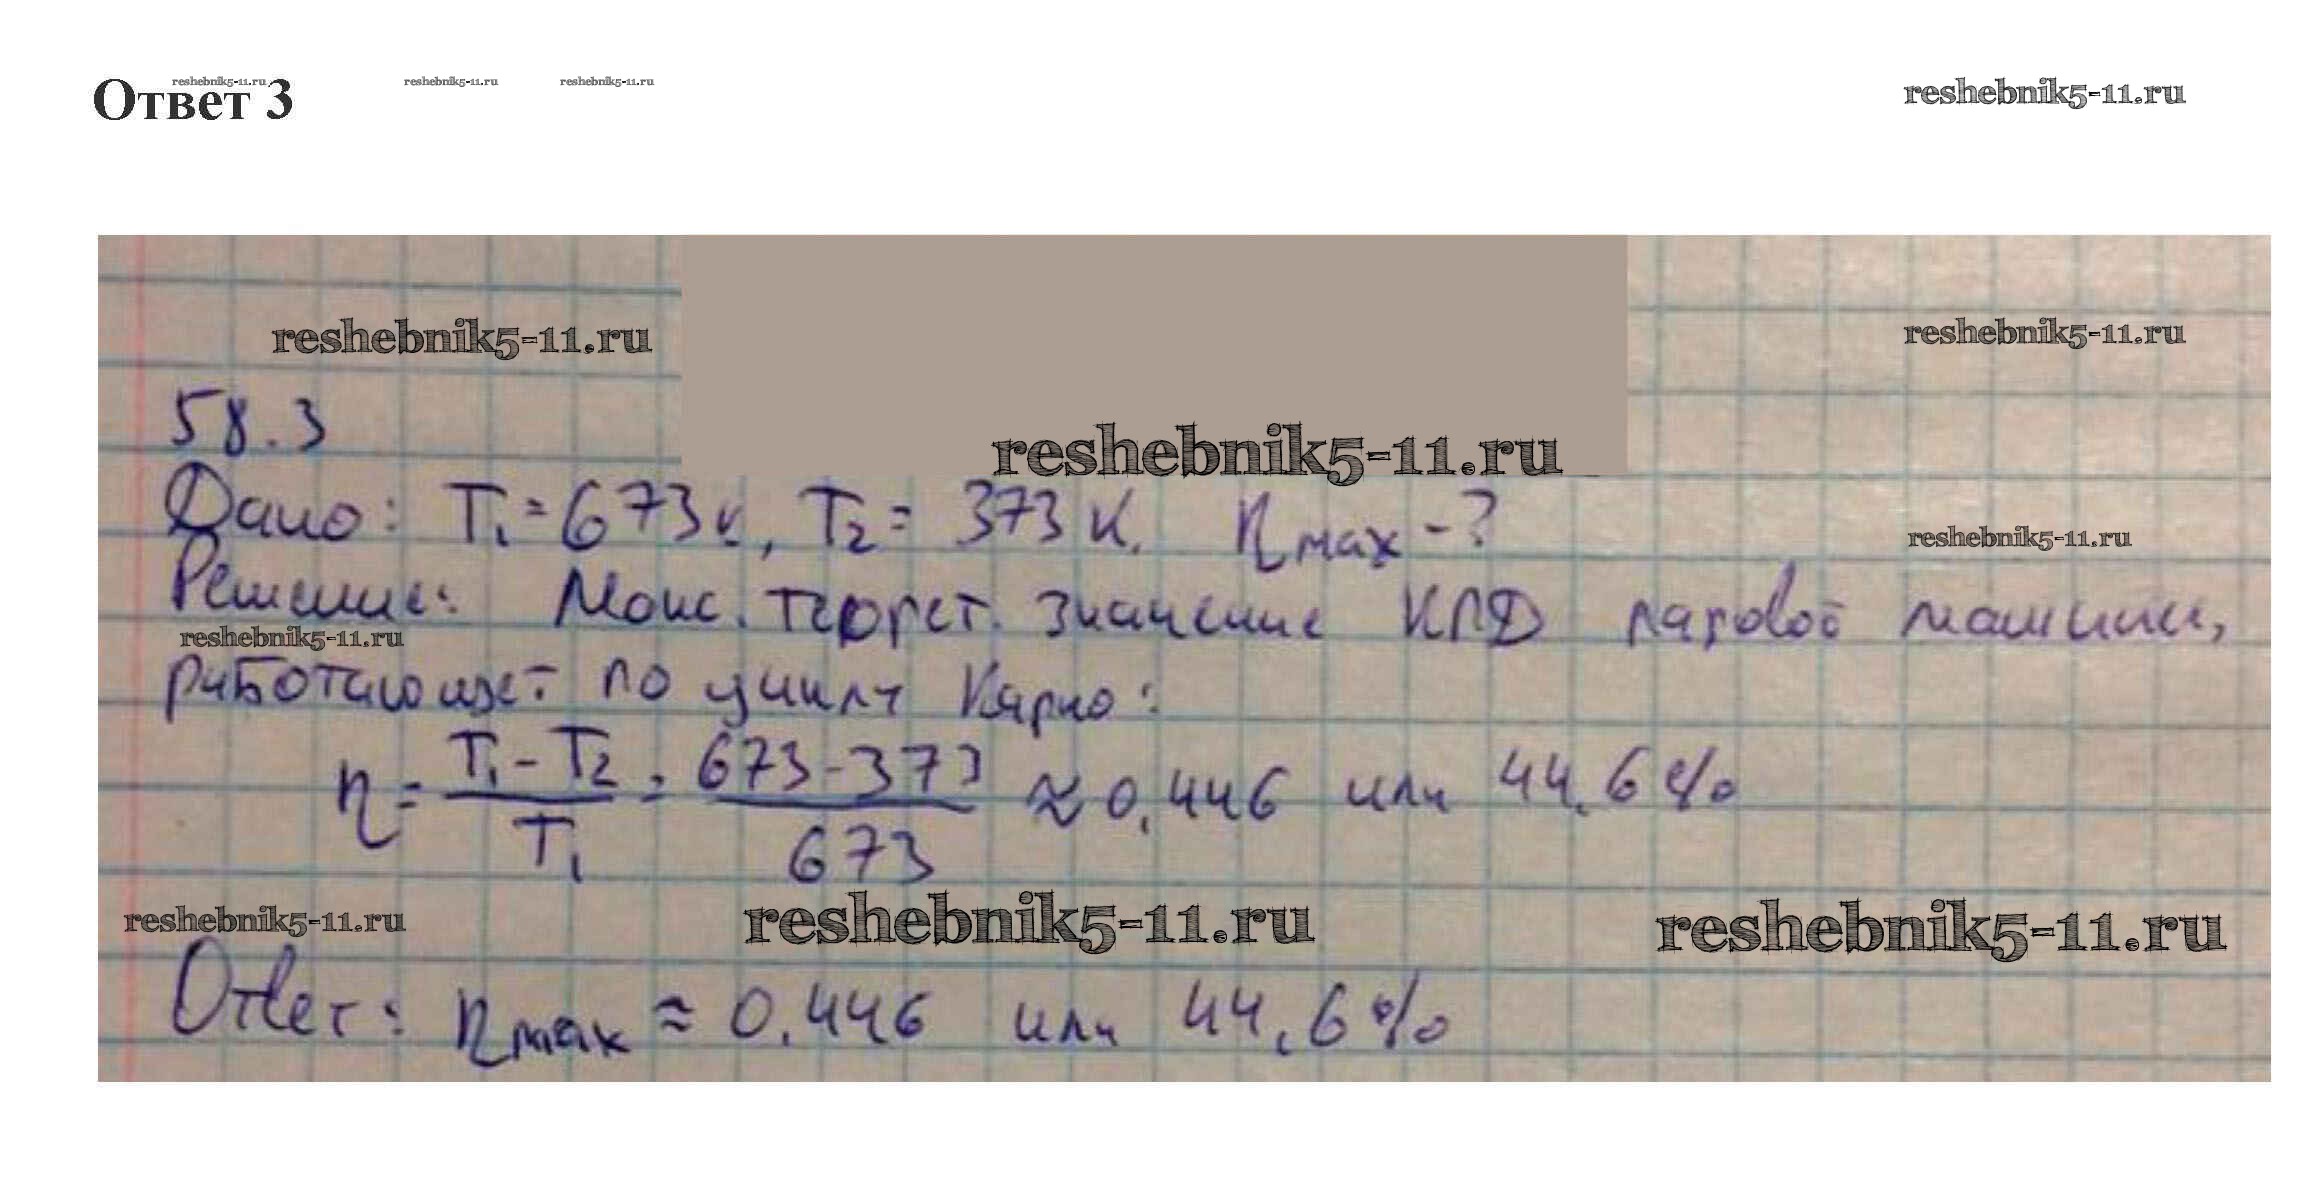 reshebnik5-11.ru reshebnik5-11.ru reshebnik5-11.ru
Ответ 3 reshebnik5-11.ru
reshebnik5-11.ru reshebnik5-11.ru
58.3
reshebnik5-11.ru
Дано: T₁ = 673 К, T₂ = 373 К. η max - ?
reshebnik5-11.ru
Решение: Макс. теорет. значение КПД паровой машины,
reshebnik5-11.ru
работающей по циклу Карно:
η = (T₁ - T₂) / T₁ = (673 - 373) / 673 ≈ 0,446 или 44,6 %
reshebnik5-11.ru reshebnik5-11.ru reshebnik5-11.ru
Ответ: η max ≈ 0,446 или 44,6 %